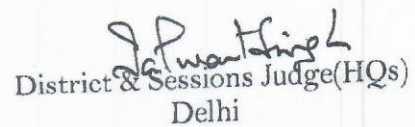 District & Sessions Judge(HQs)
Delhi